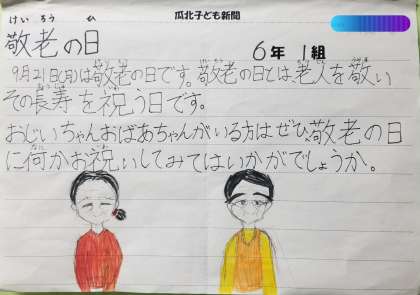 瓜北子ども新聞
けい ろう ひ
敬老の日
6年 1組
9月21日(月)は敬老の日です。敬老の日とは、老人を敬い
その長寿を祝う日です。
おじいちゃんおばあちゃんがいる方はぜひ敬老の日
に何かお祝いしてみてはいかがでしょうか。